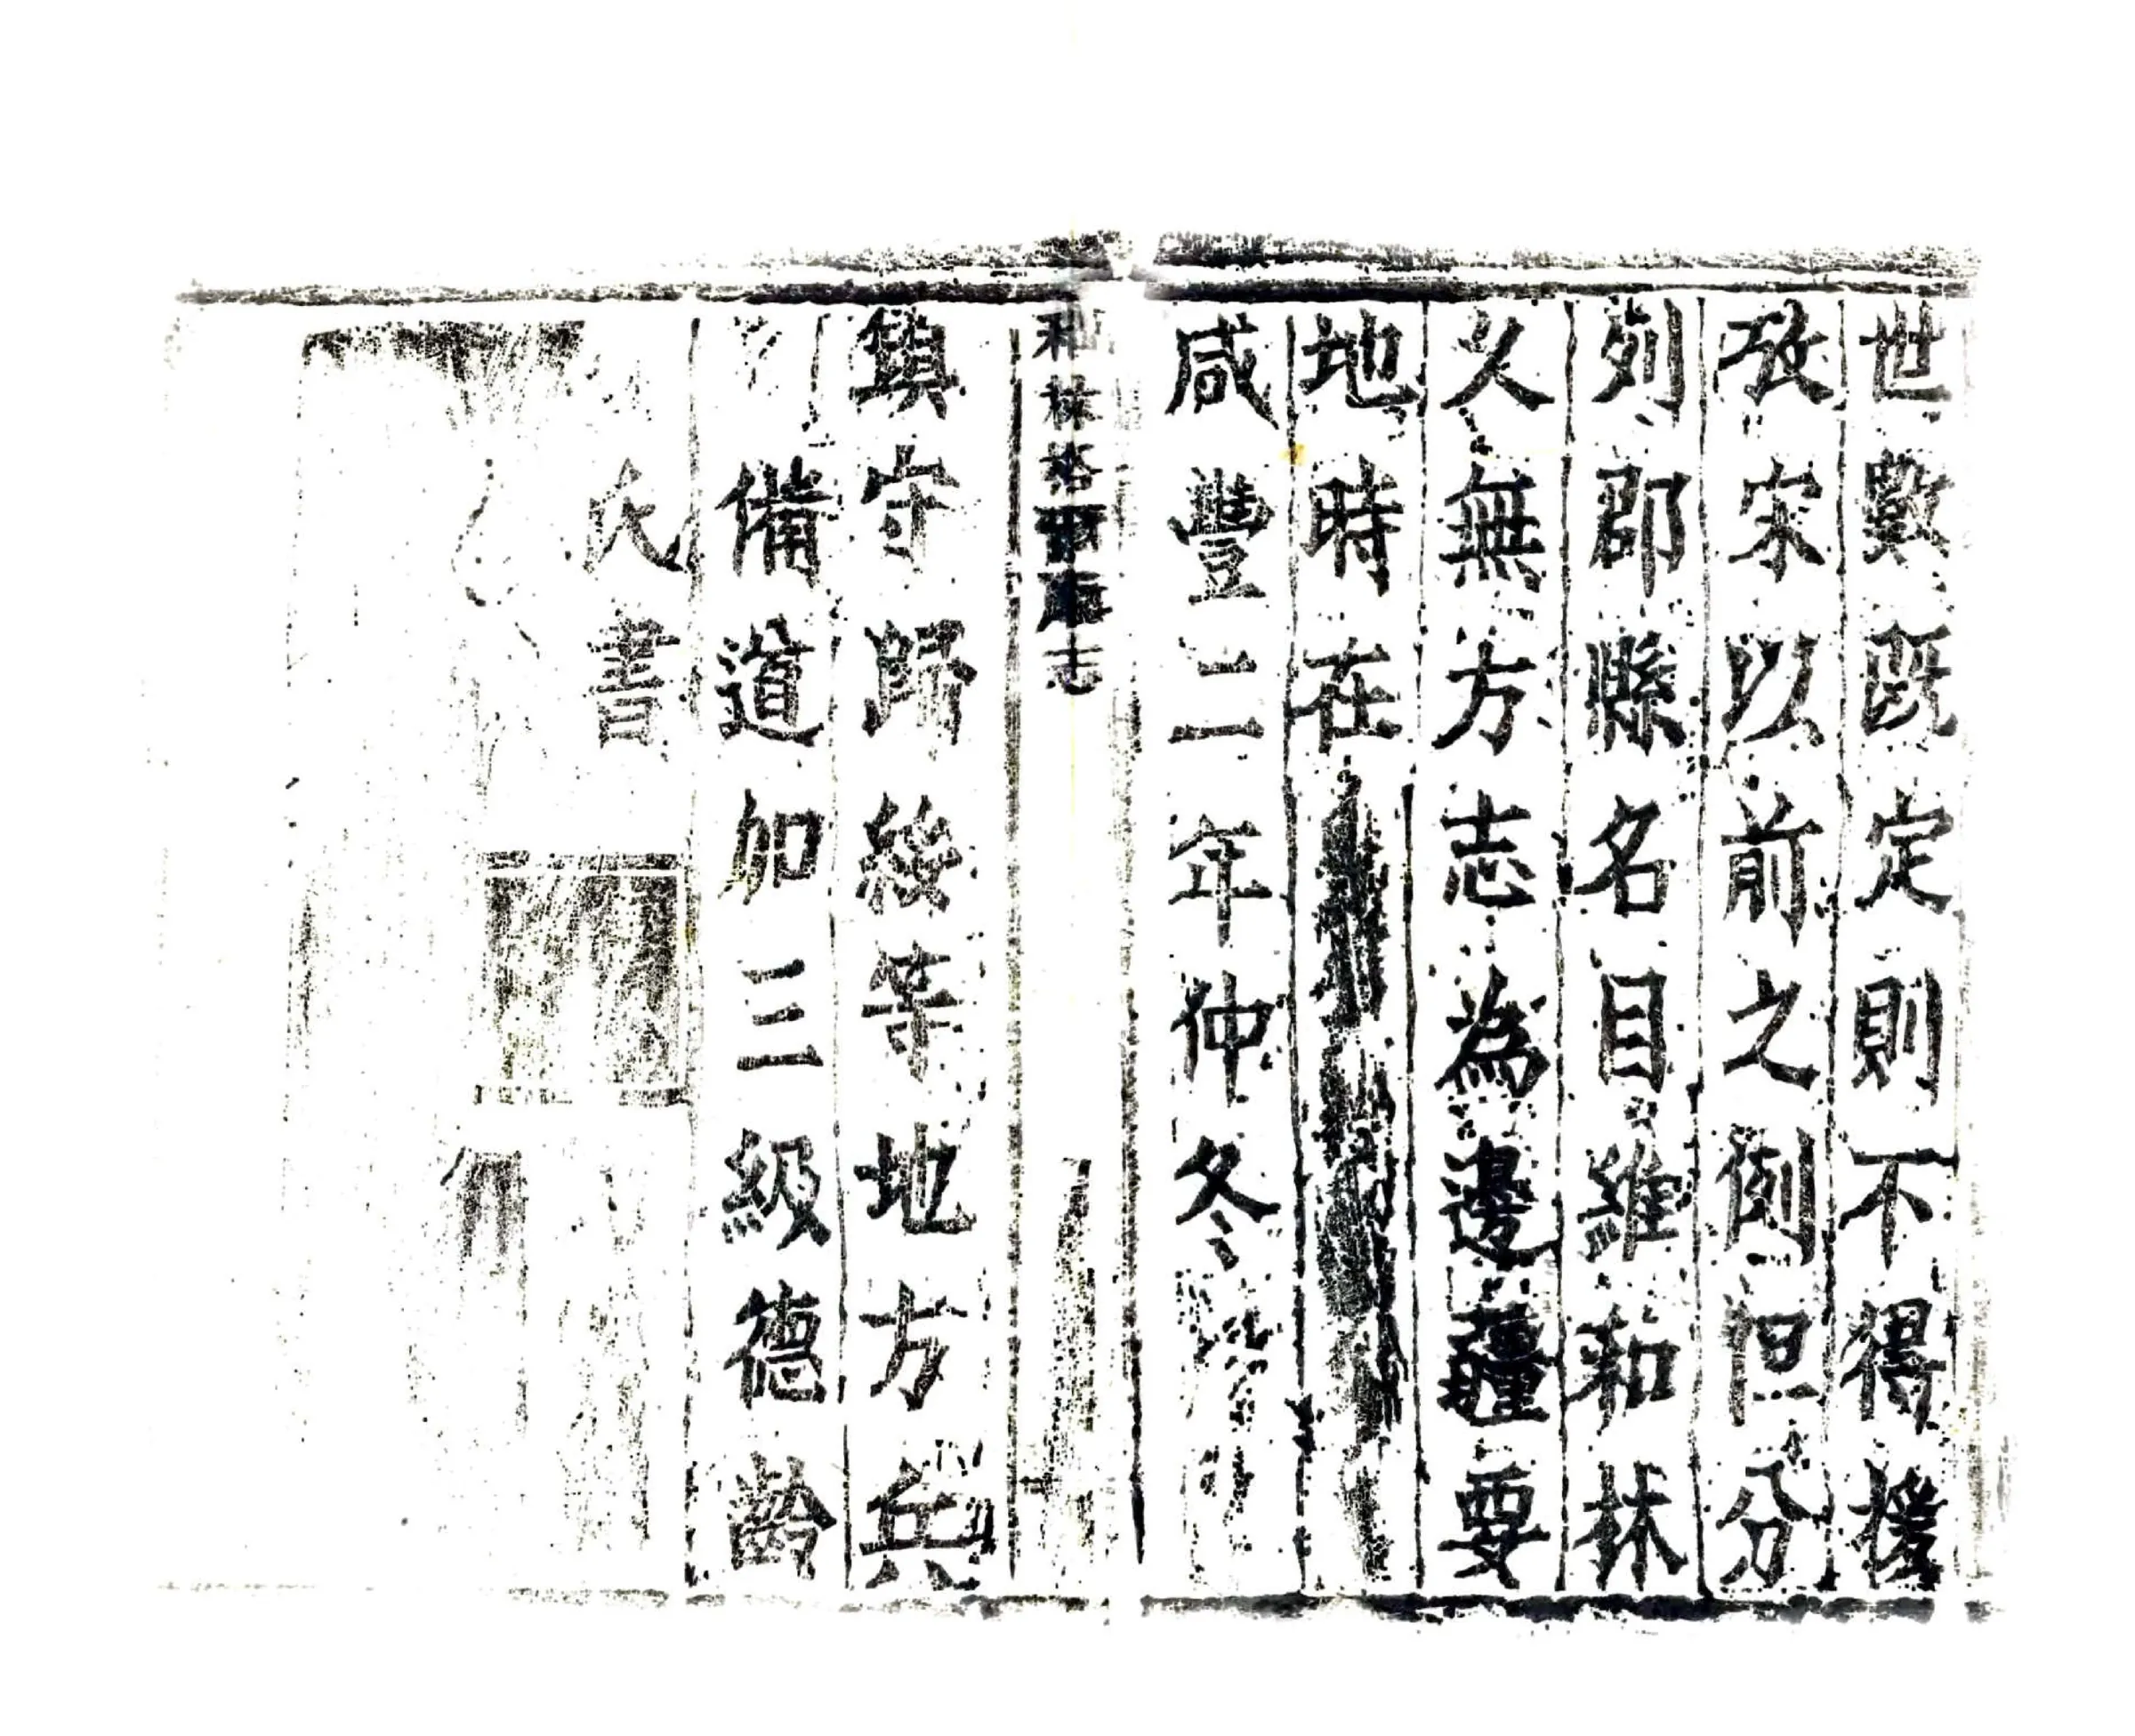 世數既定則不得援
張宋以前之例但分
列郡縣名目維和林
久無方志為邊疆要
地時在
咸豐二年仲冬
和林格爾廳志
鎮守歸綏等地方兵
備道加三級德齡
氏書